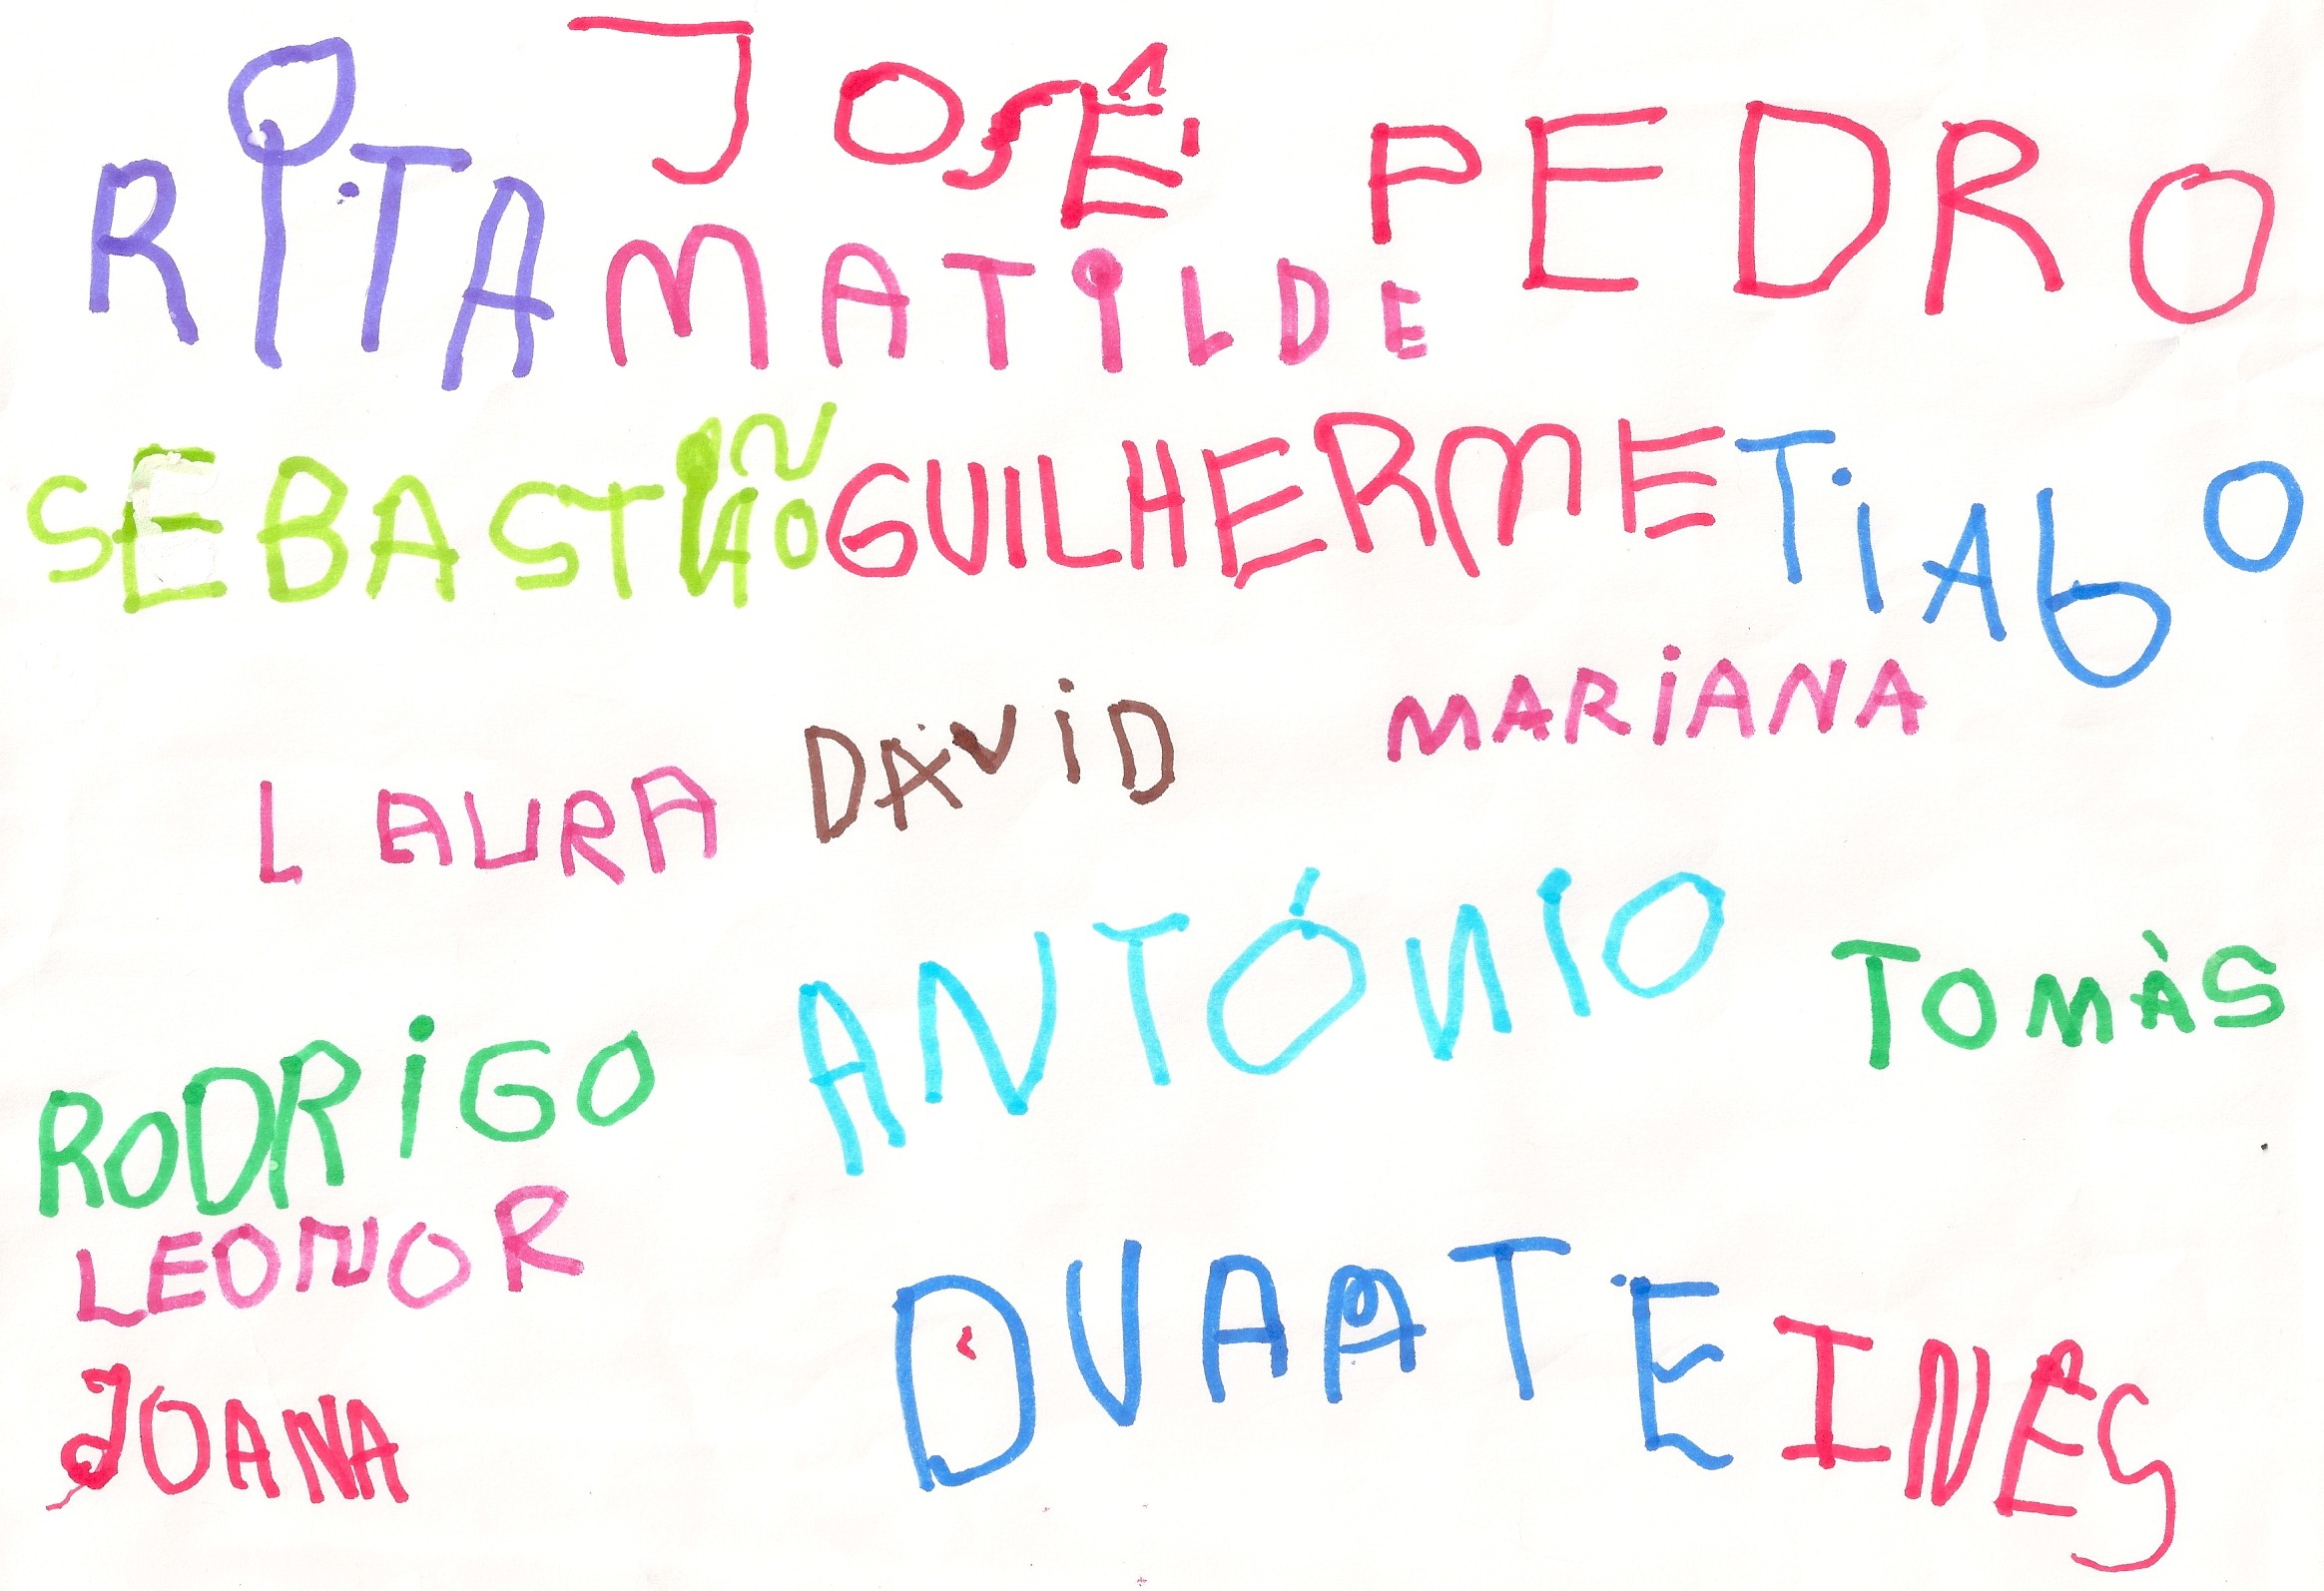 RITA JOSÊ PEDRO
MATILDE
SEBASTIÃO GUILHERME TiAGO
LAURA DAViD MARiANA
RODRiGO ANTÓNIO TOMÀS
LEONOR
JOANA DUAATE INÊS